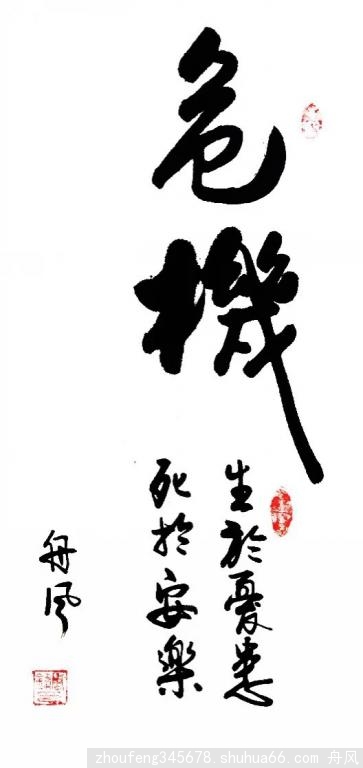 危機
生於憂患
死於安樂
舟風
zhoufeng345678.shuhua66.com 舟风